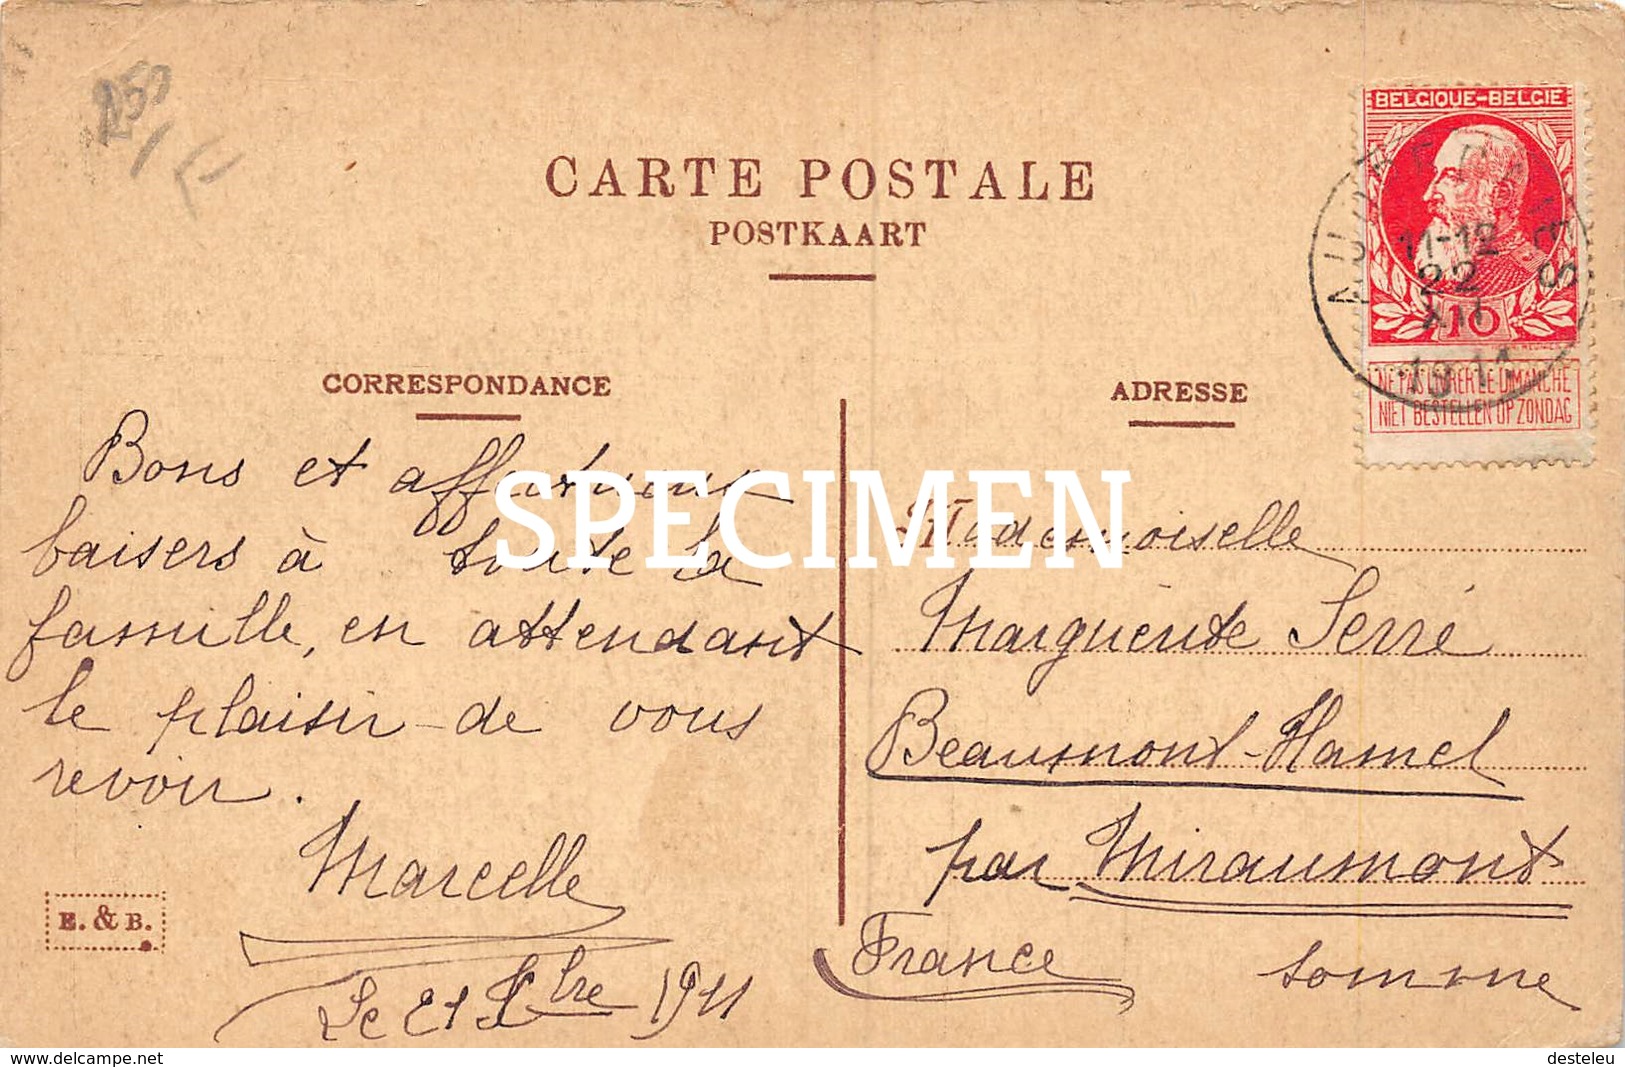 250
CARTE POSTALE
POSTKAART
BELGIQUE-BELGIE
11-12
22
XII
1911
10
NE PAS LIVRER LE DIMANCHE
NIET BESTELLEN OP ZONDAG
CORRESPONDANCE
Bons et affectueux
baisers à toute la
famille, en attendant
le plaisir de vous
revoir.
Marcelle
Le 21 Xbre 1911
E. & B.
ADRESSE
Mademoiselle
Marguerite Serré
Beaumont-Hamel
par Miraumont
France Somme
SPECIMEN
www.delcampe.net
desteleu